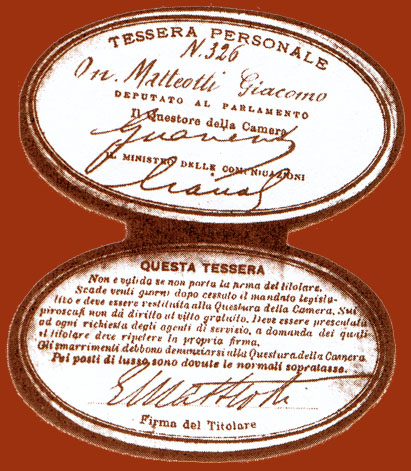 TESSERA PERSONALE
N. 326
On. Matteotti Giacomo
DEPUTATO AL PARLAMENTO
Il Questore della Camera
IL MINISTRO DELLE COMUNICAZIONI
QUESTA TESSERA
Non è valida se non porta la firma del titolare.
Scade venti giorni dopo cessato il mandato legisla-
tivo e deve essere restituita alla Questura della Camera. Sui
piroscafi non dà diritto al vitto gratuito. Deve essere presentata
ad ogni richiesta degli agenti di servizio, a domanda dei quali
il titolare deve ripetere la propria firma.
Gli smarrimenti debbono denunziarsi alla Questura della Camera.
Pei posti di lusso sono dovute le normali sopratasse.
Matteotti
Firma del Titolare